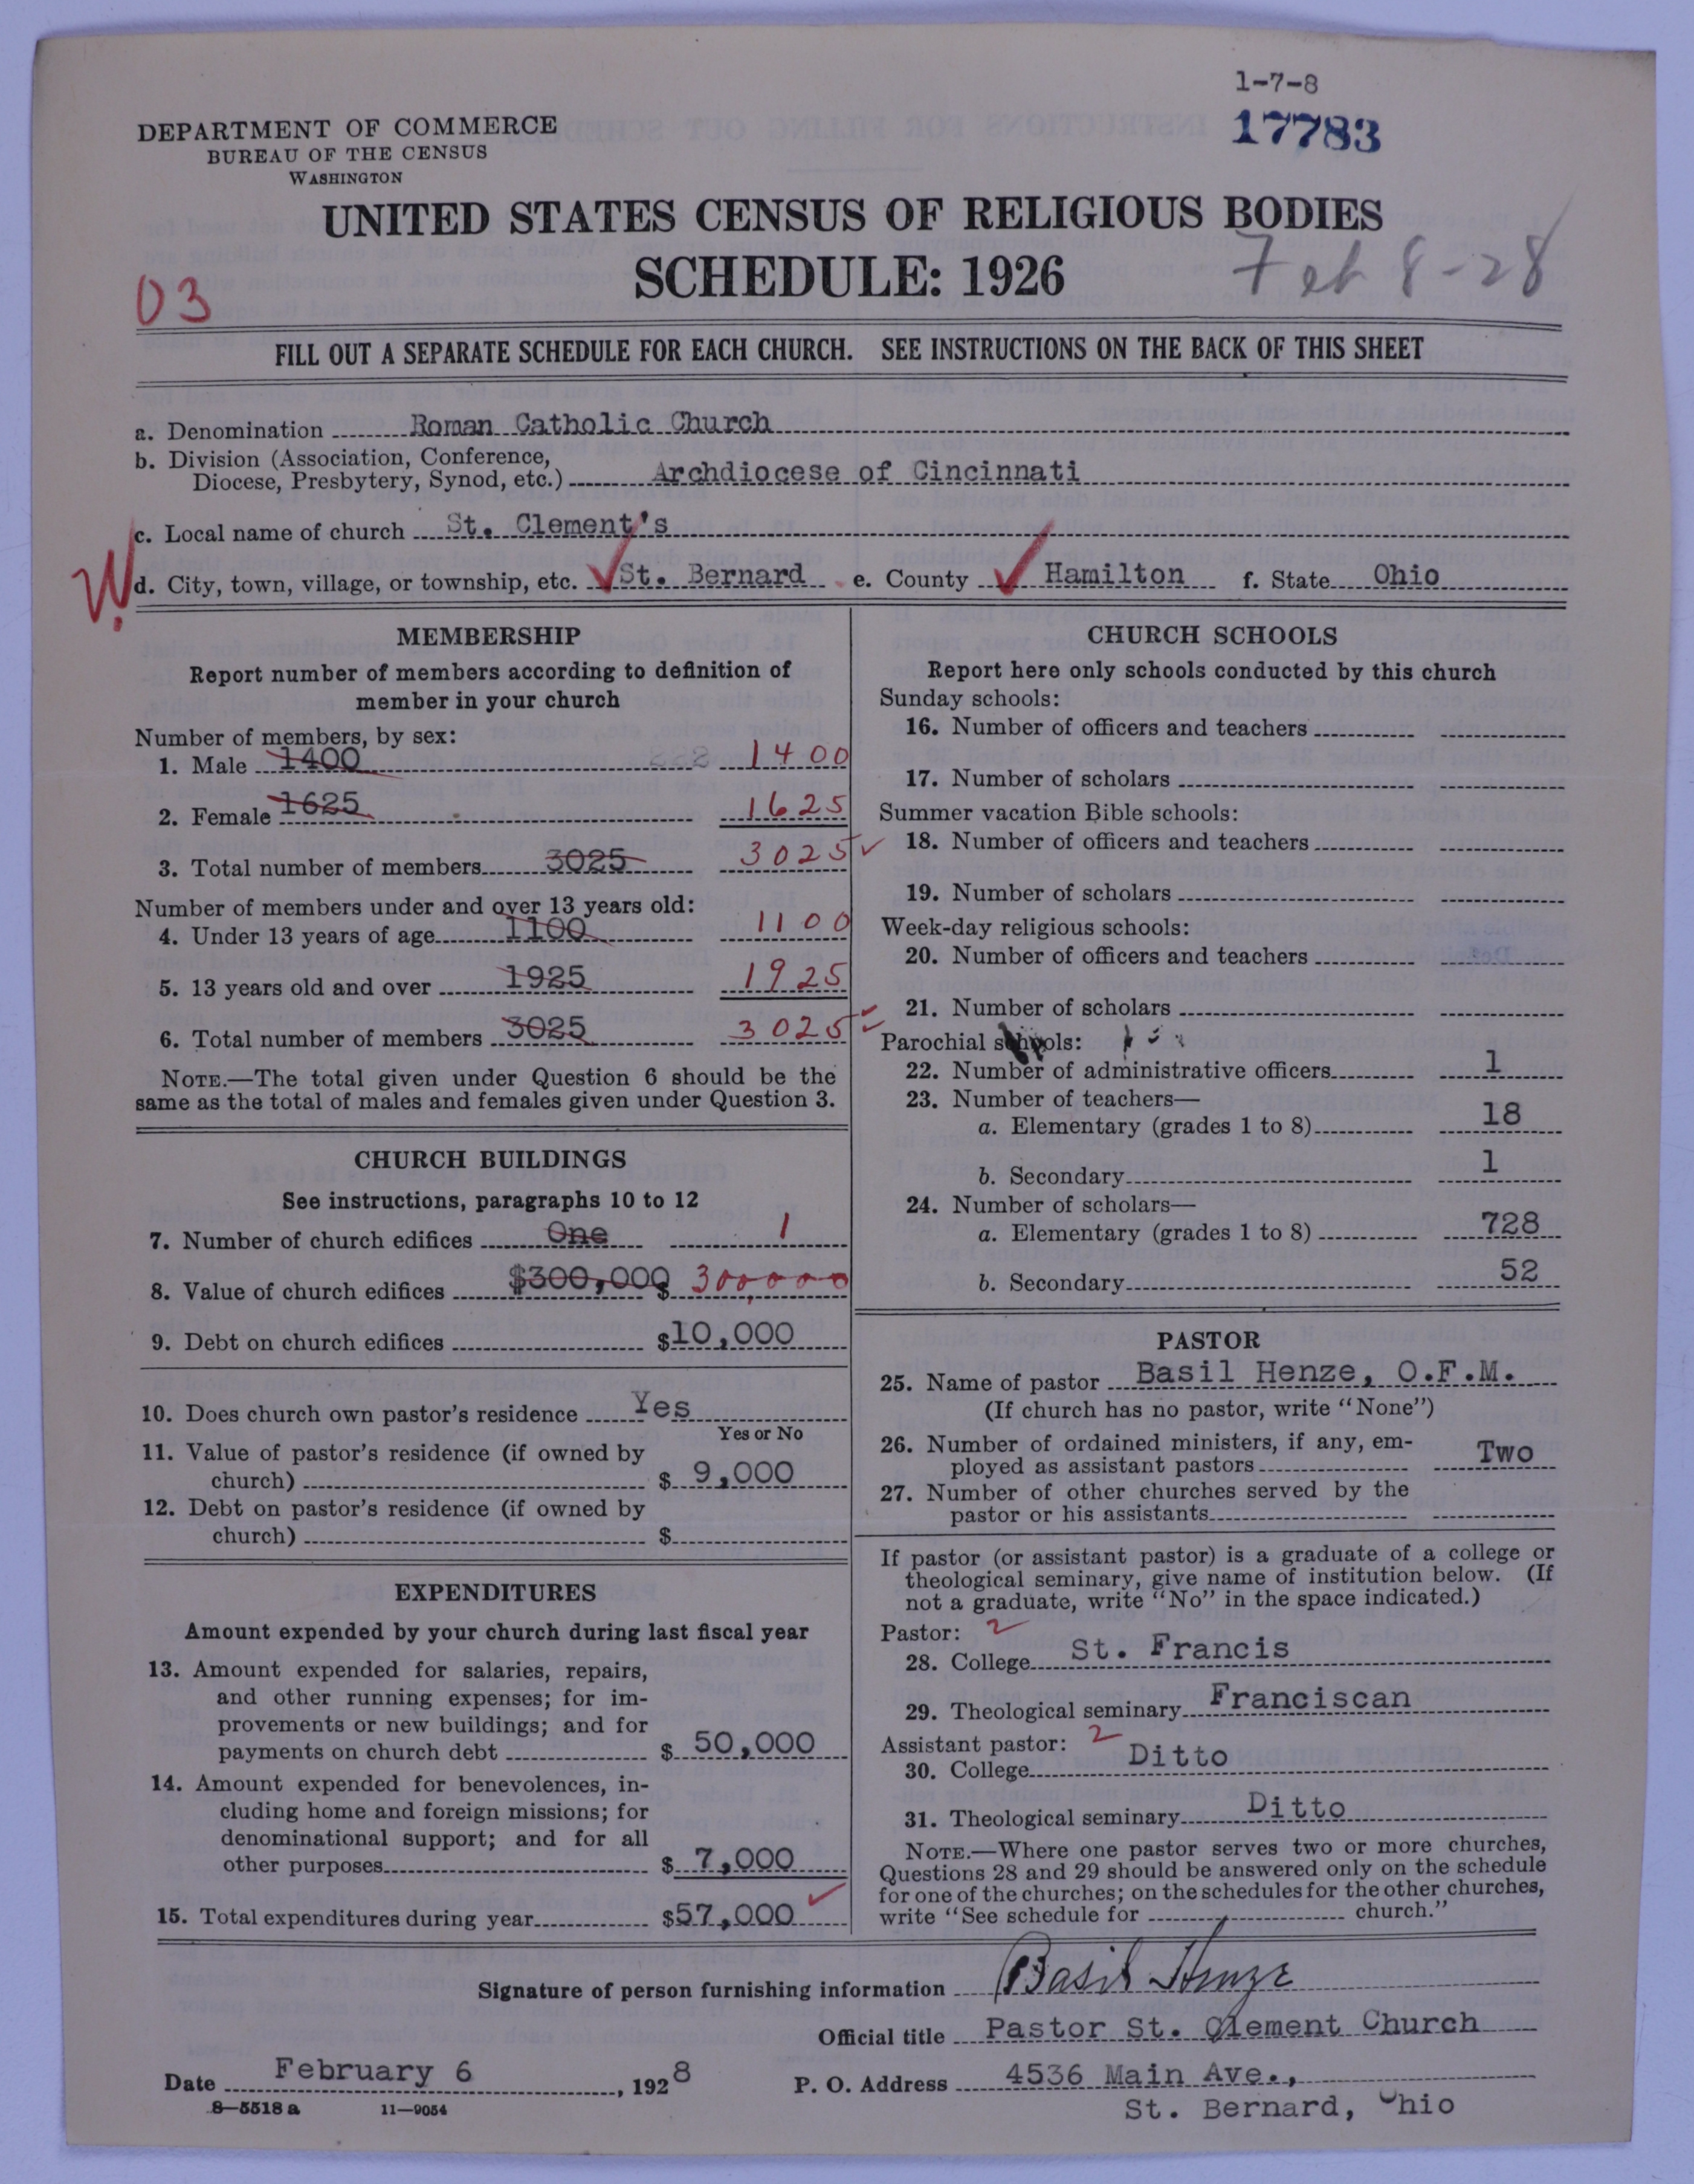 1-7-8
17783
DEPARTMENT OF COMMERCE
BUREAU OF THE CENSUS
WASHINGTON
UNITED STATES CENSUS OF RELIGIOUS BODIES
SCHEDULE: 1926
Feb 8-28
03
FILL OUT A SEPARATE SCHEDULE FOR EACH CHURCH. SEE INSTRUCTIONS ON THE BACK OF THIS SHEET
a. Denomination Roman Catholic Church
b. Division (Association, Conference,
Diocese, Presbytery, Synod, etc.) Archdiocese of Cincinnati
c. Local name of church St. Clement's
W. d. City, town, village, or township, etc. St. Bernard e. County Hamilton f. State Ohio
MEMBERSHIP
Report number of members according to definition of
member in your church
Number of members, by sex:
1. Male 1400 1400
2. Female 1625 1625
3. Total number of members 3025 3025
Number of members under and over 13 years old:
4. Under 13 years of age 1100 1100
5. 13 years old and over 1925 1925
6. Total number of members 3025 3025
NOTE.—The total given under Question 6 should be the
same as the total of males and females given under Question 3.
CHURCH BUILDINGS
See instructions, paragraphs 10 to 12
7. Number of church edifices One 1
8. Value of church edifices $300,000 $ 300,000
9. Debt on church edifices $10,000
10. Does church own pastor's residence Yes
Yes or No
11. Value of pastor's residence (if owned by
church) $ 9,000
12. Debt on pastor's residence (if owned by
church) $
EXPENDITURES
Amount expended by your church during last fiscal year
13. Amount expended for salaries, repairs,
and other running expenses; for im-
provements or new buildings; and for
payments on church debt $ 50,000
14. Amount expended for benevolences, in-
cluding home and foreign missions; for
denominational support; and for all
other purposes $ 7,000
15. Total expenditures during year $57,000
CHURCH SCHOOLS
Report here only schools conducted by this church
Sunday schools:
16. Number of officers and teachers
17. Number of scholars
Summer vacation Bible schools:
18. Number of officers and teachers
19. Number of scholars
Week-day religious schools:
20. Number of officers and teachers
21. Number of scholars
Parochial schools:
22. Number of administrative officers 1
23. Number of teachers—
a. Elementary (grades 1 to 8) 18
b. Secondary 1
24. Number of scholars—
a. Elementary (grades 1 to 8) 728
b. Secondary 52
PASTOR
25. Name of pastor Basil Henze, O.F.M.
(If church has no pastor, write "None")
26. Number of ordained ministers, if any, em-
ployed as assistant pastors Two
27. Number of other churches served by the
pastor or his assistants
If pastor (or assistant pastor) is a graduate of a college or
theological seminary, give name of institution below. (If
not a graduate, write "No" in the space indicated.)
Pastor: 2
28. College St. Francis
29. Theological seminary Franciscan
Assistant pastor: 2
30. College Ditto
31. Theological seminary Ditto
NOTE.—Where one pastor serves two or more churches,
Questions 28 and 29 should be answered only on the schedule
for one of the churches; on the schedules for the other churches,
write "See schedule for church."
Signature of person furnishing information Basil Henze
Official title Pastor St. Clement Church
Date February 6, 1928 P. O. Address 4536 Main Ave.,
St. Bernard, Ohio
8—5518 a 11—9054